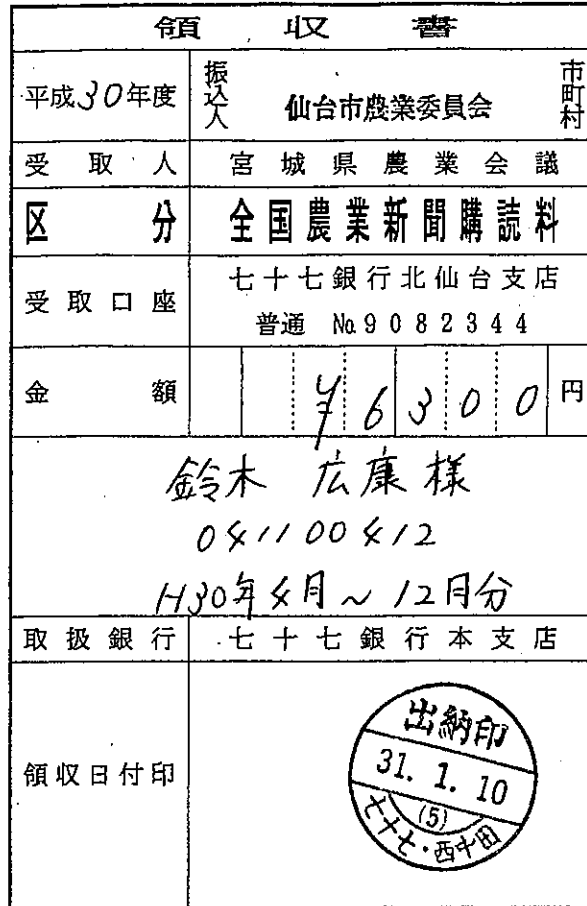 領収書
平成30年度 振込人 仙台市農業委員会 市町村
受取人 宮城県農業会議
区分 全国農業新聞購読料
受取口座 七十七銀行北仙台支店
普通 №9082344
金額 ¥6300円
鈴木 広康様
041100412
H30年4月~12月分
取扱銀行 七十七銀行本支店
領収日付印
出納印
31.1.10
(5)
七十七・西中田